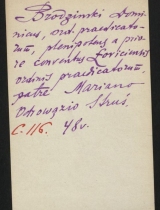 Brodzinski Domi-
nicus, ord. praedicato-
rum, plenipotens a prio-
re conventus Loviciensis
ordinis praedicatorum,
patre Mariano
Ostrowązio Skuś.
C. 116. 48v.